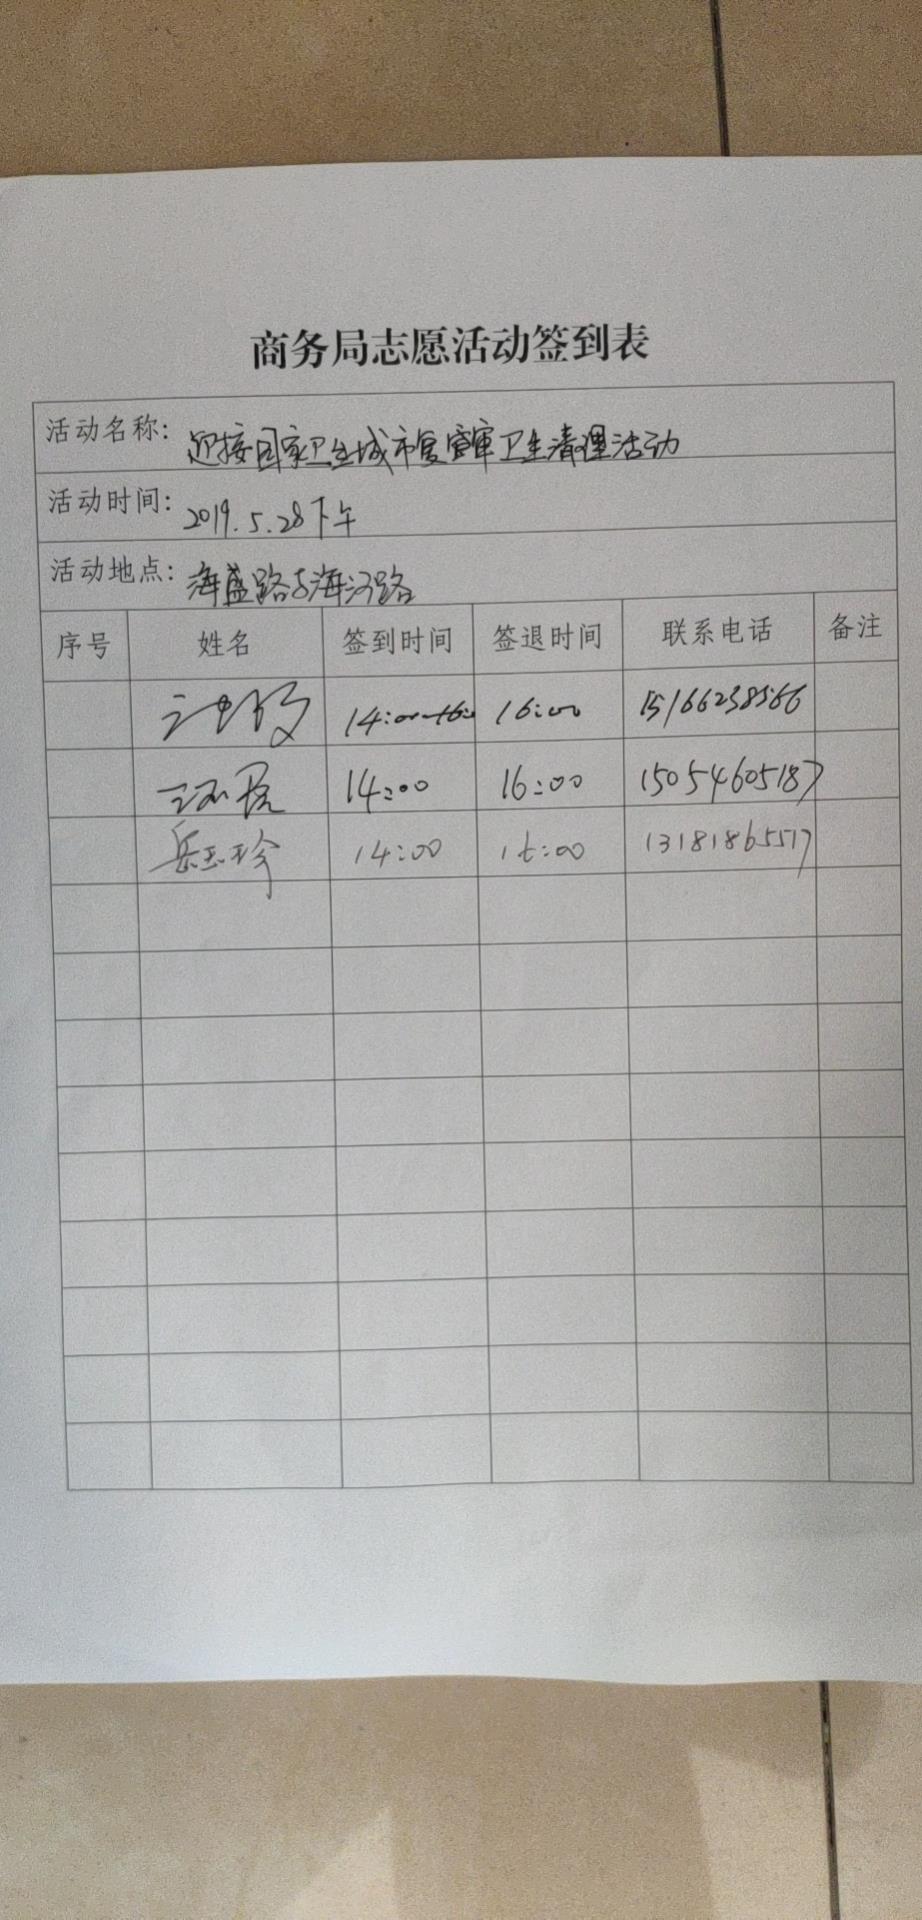 商务局志愿活动签到表
活动名称: 迎接国家卫生城市复审卫生清理活动
活动时间: 2019.5.28下午
活动地点: 海盛路与海河路
序号 姓名 签到时间 签退时间 联系电话 备注
14:00 16:00 15166238566
14:00 16:00 15054605187
岳玉珍 14:00 16:00 13181865517